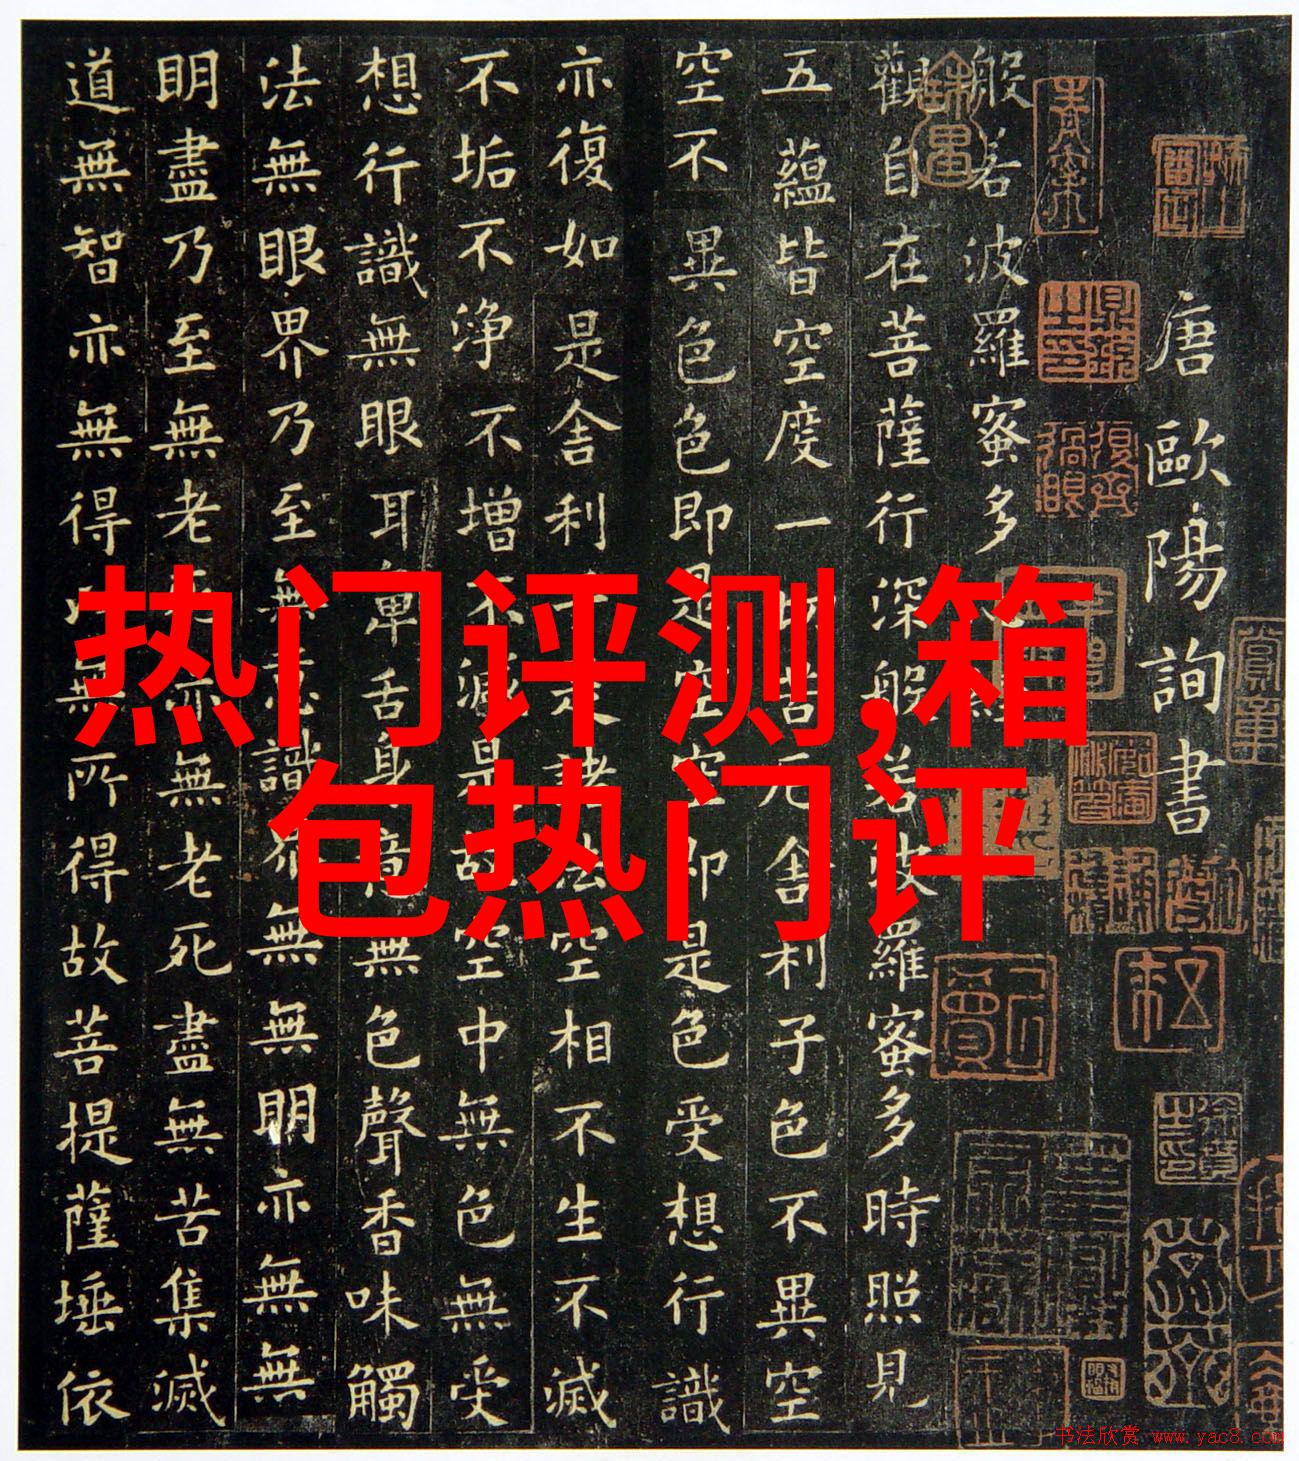 热门评测,箱
包热门评
唐歐陽詢書
般若波羅蜜多
觀自在菩薩行深般若波羅蜜多時照見
五蘊皆空度一苦厄舍利子色不異空
空不異色色即是空空即是色受想行識
亦復如是舍利子是諸法空相不生不滅
不垢不淨不增不減是故空中無色無受
想行識無眼耳鼻舌身意無色聲香味觸
法無眼界乃至無意識界無無明亦無無
明盡乃至無老死亦無老死盡無苦集滅
道無智亦無得以無所得故菩提薩埵依
书法欣赏 www.yac8.com